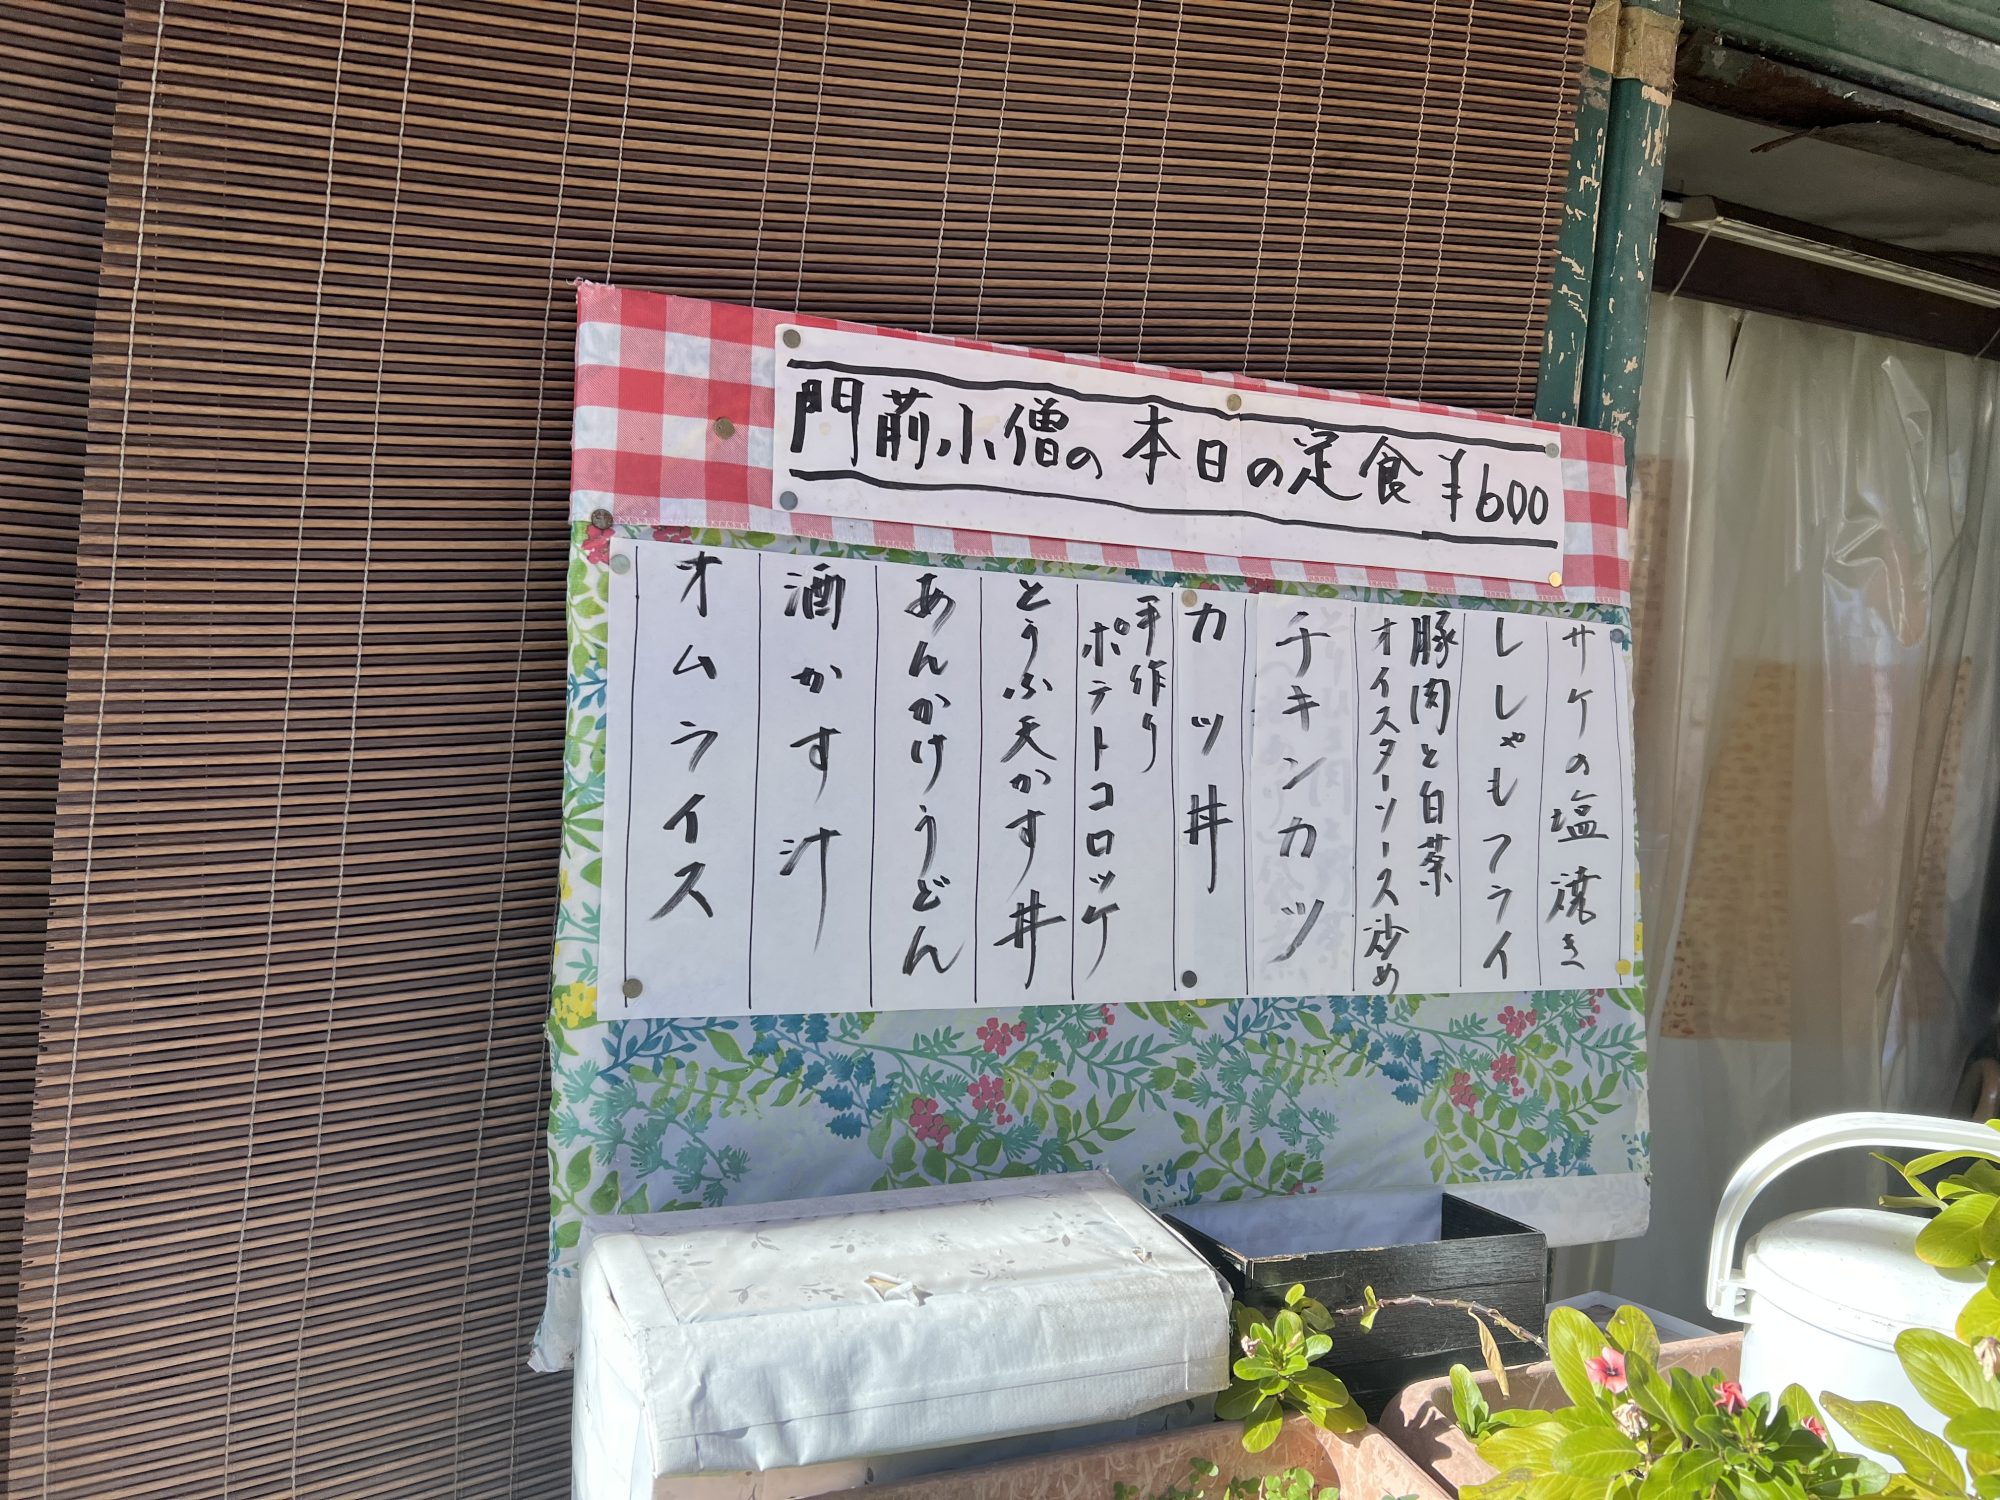 門前小僧の本日の定食 ¥600
サケの塩焼き
ししゃもフライ
豚肉と白菜
オイスターソース炒め
チキンカツ
カツ丼
手作り
ポテトコロッケ
とうふ天かす丼
あんかけうどん
酒かす汁
オムライス